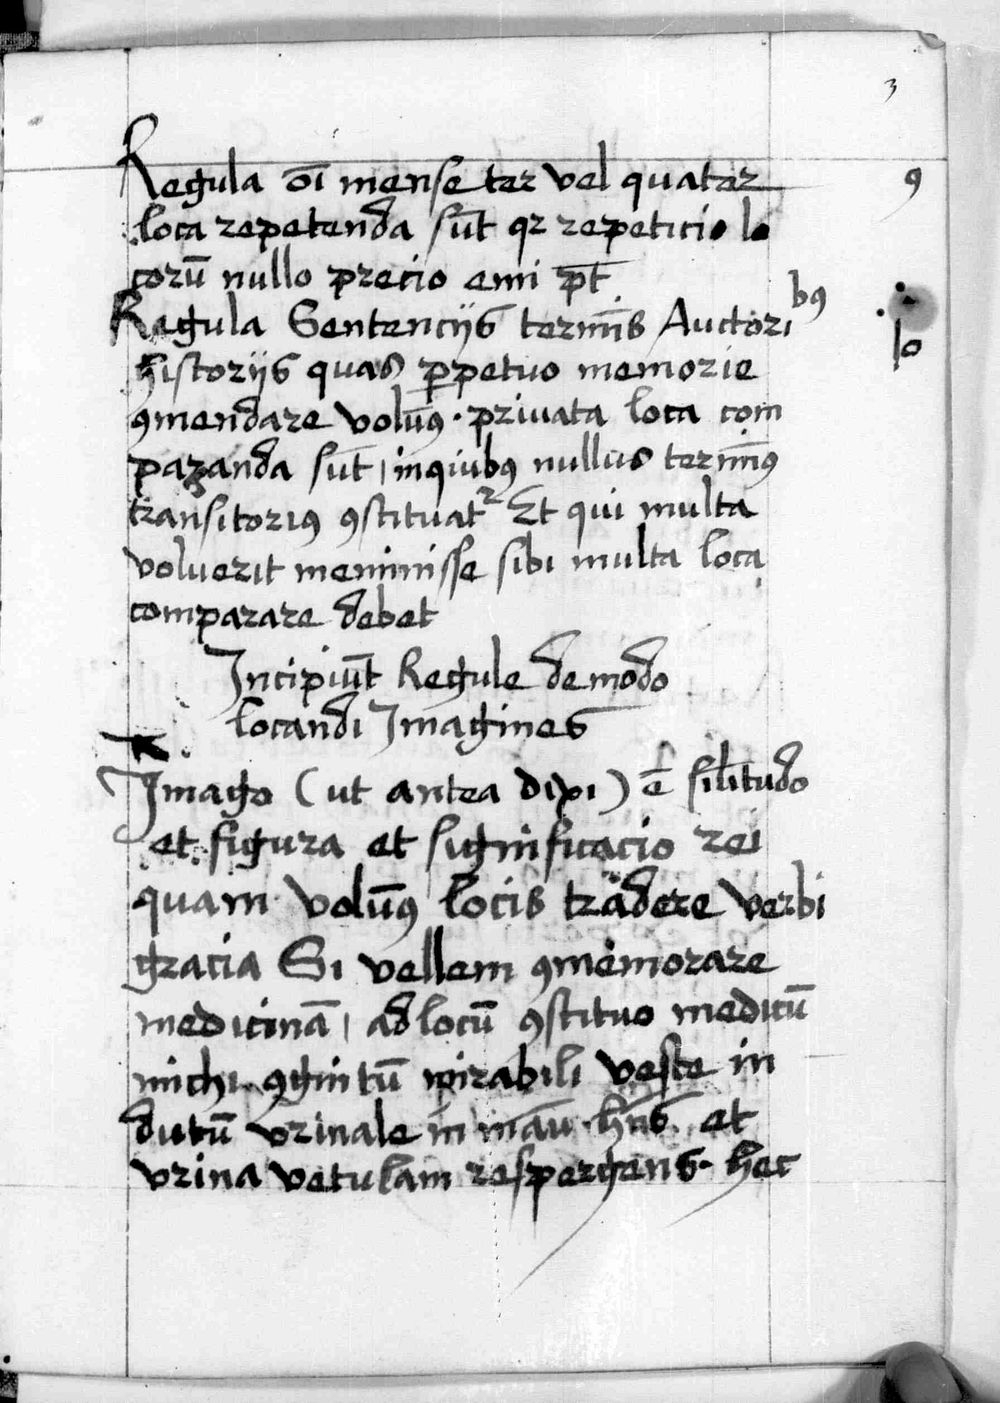 3
Regula oi̅ mense ter vel quater 9
loca repetenda su̅t qr repeticio lo
coru̅ nullo precio emi p̅t
Regula Sentencijs termi̅s Auctoribꝯ 10
historijs quas ꝑpetuo memorie
ꝯmendare volu̅ꝯ · privata loca com
paranda su̅t | inquibꝯ nullus termi̅ꝯ
transitoriꝯ ꝯstituatꝛ Et qui multa
voluerit meminisse sibi multa loca
comparare debet
Incipiu̅t Regule de modo
locandi Imagines
Imago (ut antea dixi) e̅ sil̅itudo
et figura et significacio rei
quam volu̅ꝯ locis tradere verbi
gracia Si vellem ꝯmemorare
medicina̅ | ad locu̅ ꝯstituo medicu̅
michi ꝯgnitu̅ mirabili veste in
dutu̅ vrinale in manu h̅ns et
vrina vetulam respergens · hec